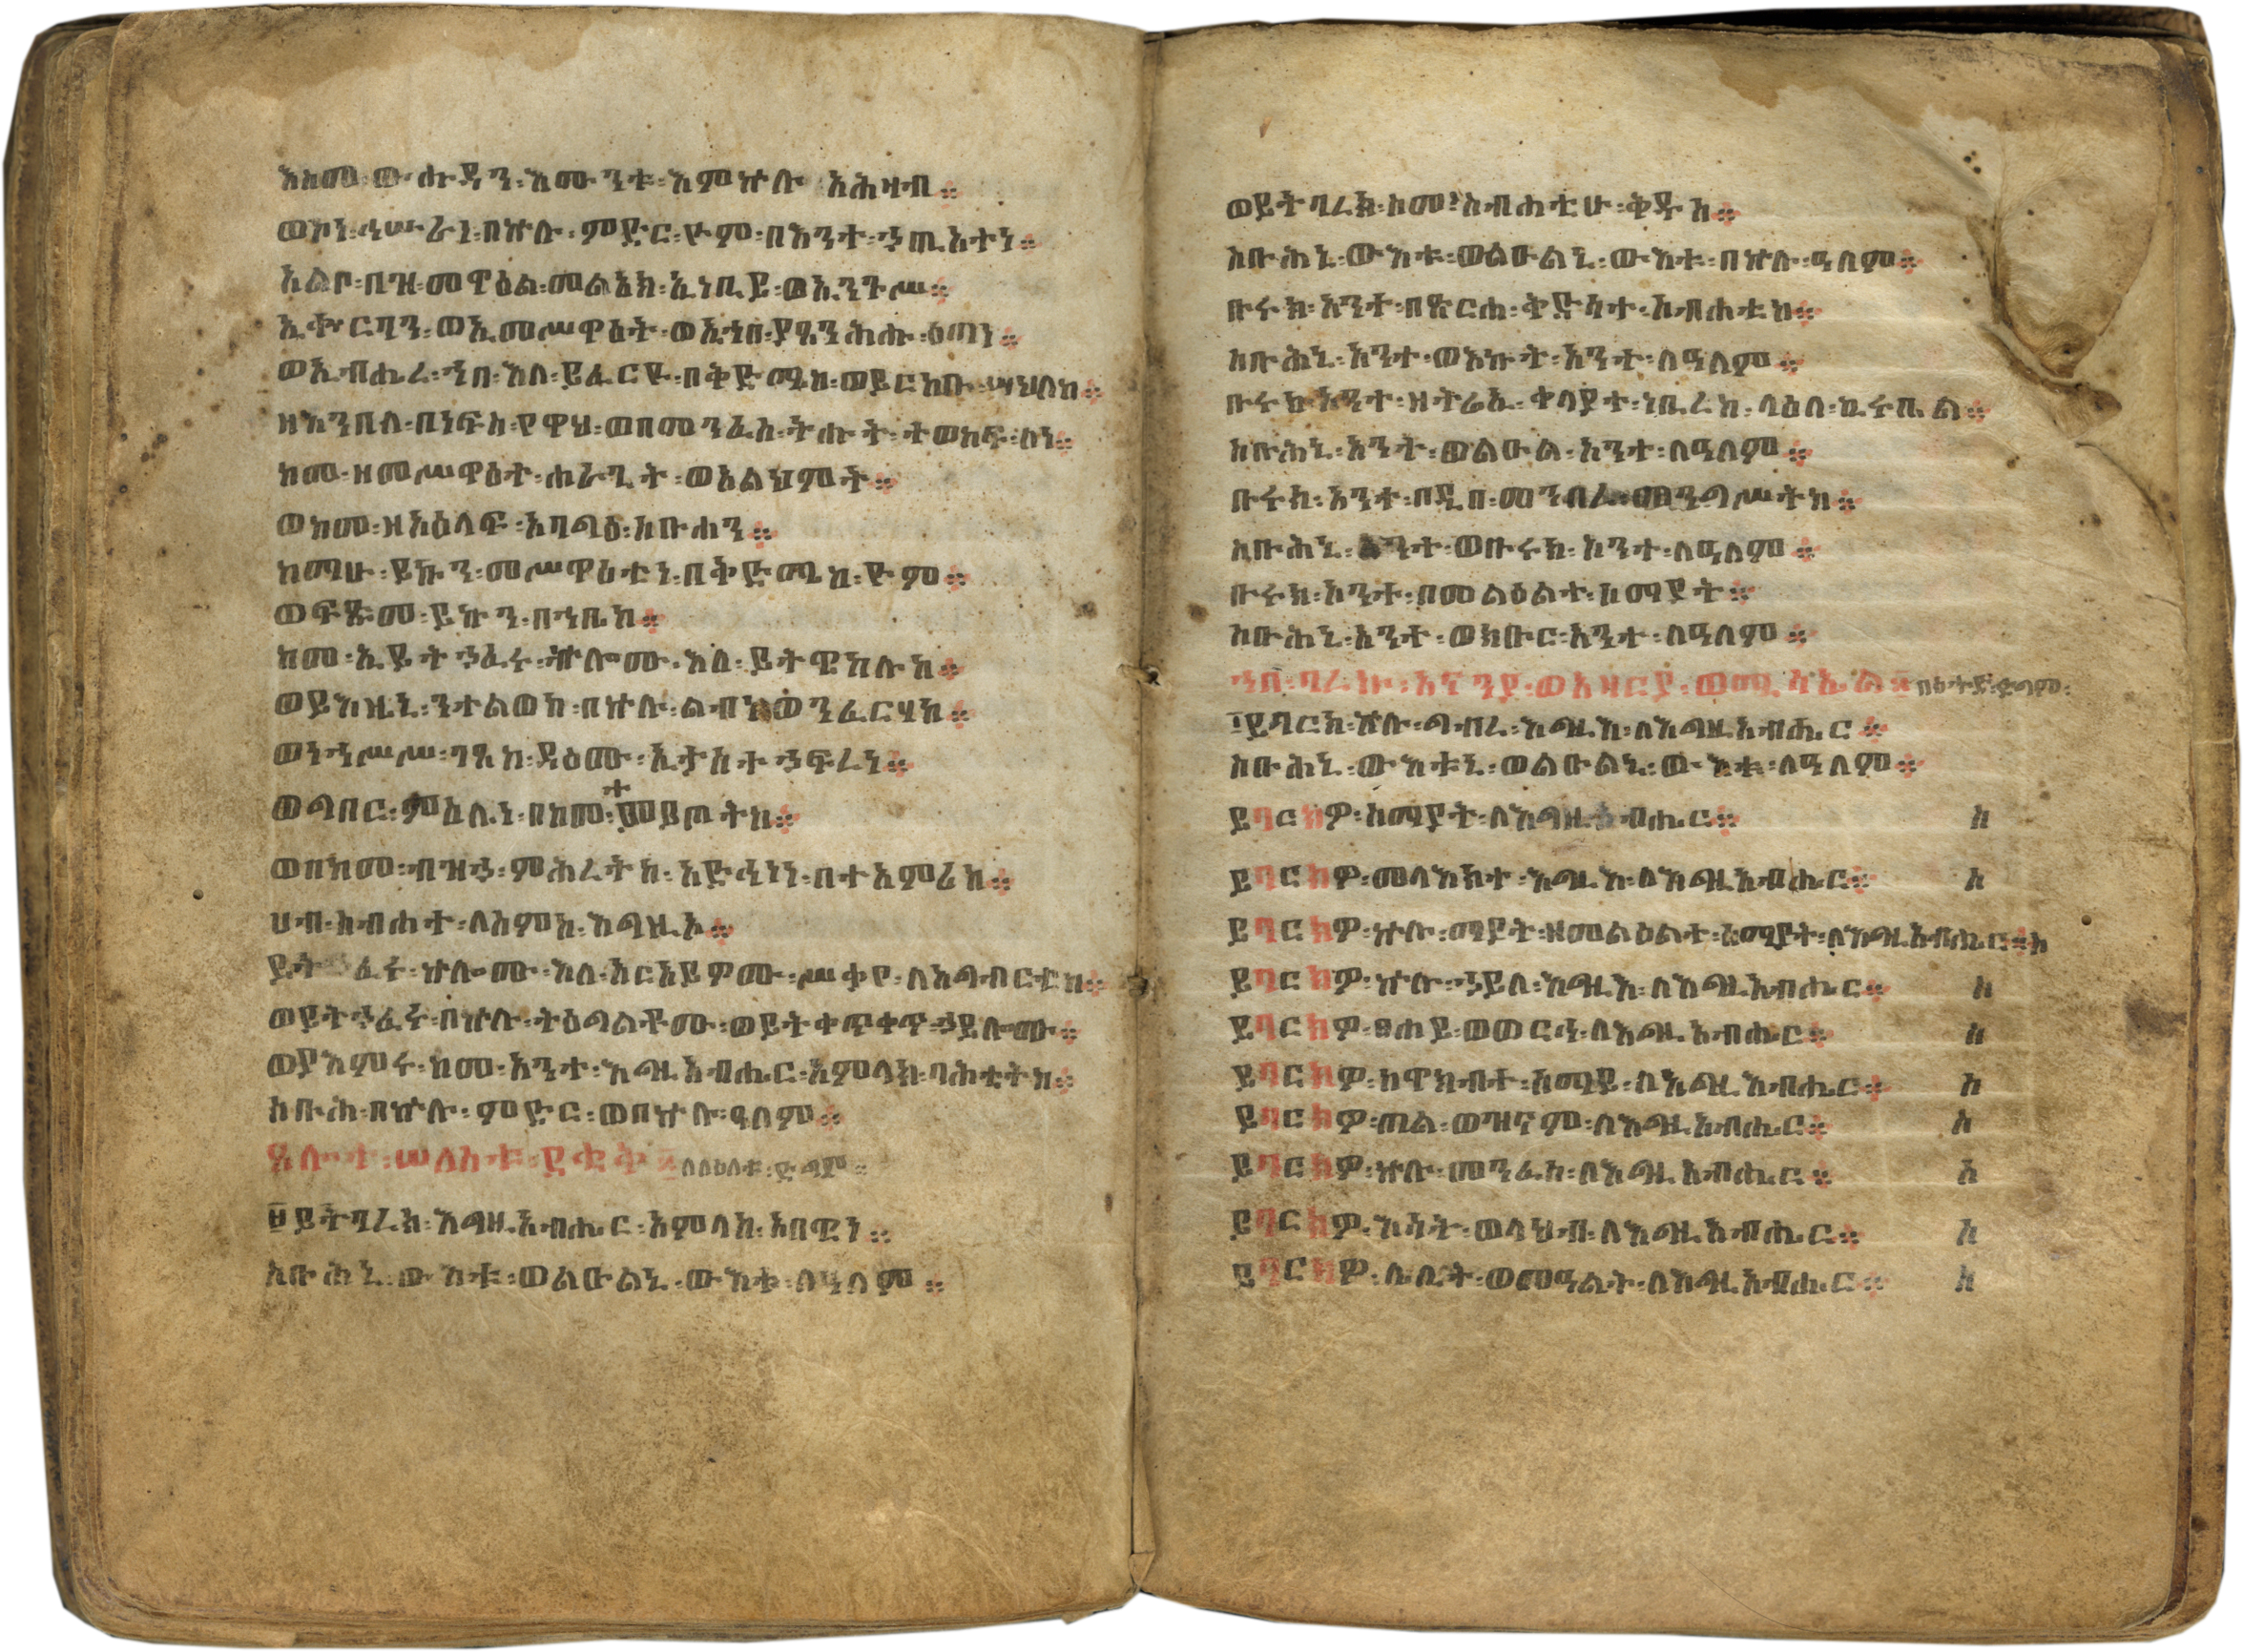 እስመ ፡ ውሑዳን ፡ እሙንቱ ፡ እምኵሉ አሕዛብ ።
ወኮነ ፡ ኅሡራነ ፡ በኵሉ ፡ ምድር ፡ ዮም ፡ በእንተ ፡ ኃጢአተነ ።
አልቦ ፡ በዝ ፡ መዋዕል ፡ መልአክ ፡ ኢነቢይ ፡ ወኢንጉሥ ።
ኢቍርባን ፡ ወኢመሥዋዕት ፡ ወኢኀበ ፡ ያዔንሕሑ ፡ ዕጣነ ።
ወኢብሔረ ፡ ኀበ ፡ እለ ፡ ይፈርዩ ፡ በቅድሜከ ፡ ወይርከቡ ፡ ሣህለከ ።
ዘእንበለ ፡ በነፍስ ፡ የዋህ ፡ ወበመንፈስ ፡ ትሑት ፡ ተወከፍ ፡ ለነ ።
ከመ ፡ ዘመሥዋዕተ ፡ ሐራጊት ፡ ወአልህምት ።
ወከመ ፡ ዘአዕላፍ ፡ አባግዕ ፡ ስቡሐን ።
ከማሁ ፡ ይኩን ፡ መሥዋዕቲነ ፡ በቅድሜከ ፡ ዮም ።
ወፍጹመ ፡ ይኩን ፡ በኀቤከ ።
ከመ ፡ ኢይትኃፈሩ ፡ ኵሎሙ ፡ እለ ፡ ይትዌከሉከ ።
ወይእዜኒ ፡ ንተልወከ ፡ በኵሉ ፡ ልብነ ፡ ወንፈርሃከ ።
ወነኀሥሥ ፡ ገጸከ ፡ ዳዕሙ ፡ ኢታስተኃፍረነ ።
ወግበር ፡ ምስሌነ ፡ በከመ ፡ የመይጦትከ ።
ወበከመ ፡ ብዝኃ ፡ ምሕረትከ ፡ አድኅነነ ፡ በተአምሪከ ።
ሀብ ፡ ስብሐተ ፡ ለስምከ ፡ እግዚኦ ።
ይትኃፈሩ ፡ ኵሎሙ ፡ እለ ፡ አርአይዎሙ ፡ ሥቃየ ፡ ለአግብርቲከ ።
ወይትኃፈሩ ፡ በኵሉ ፡ ትዕግልቶሙ ፡ ወይትቀጥቀጥ ፡ ኃይሎሙ ።
ወያእምሩ ፡ ከመ ፡ አንተ ፡ እግዚአብሔር ፡ አምላክ ፡ ባሕቲትከ ።
ስቡሕ ፡ በኵሉ ፡ ምድር ፡ ወበኵሉ ፡ ዓለም ።
ጸሎተ ፡ ሠለስቱ ፡ ደቂቅ ፡ ለለዕለቱ ፡ ድግም ።
፱ ይትባረክ ፡ እግዚአብሔር ፡ አምላከ ፡ አበዊነ ።
ስቡሕኒ ፡ ውእቱ ፡ ወልዑልኒ ፡ ውእቱ ፡ ለዓለም ።
ወይትባረክ ፡ ስመ ፡ ስብሐቲሁ ፡ ቅዱስ ።
ስቡሕኒ ፡ ውእቱ ፡ ወልዑልኒ ፡ ውእቱ ፡ በኵሉ ፡ ዓለም ።
ቡሩክ ፡ አንተ ፡ በጽርሐ ፡ ቅድሳተ ፡ ስብሐቲከ ።
ስቡሕኒ ፡ አንተ ፡ ወእኩት ፡ አንተ ፡ ለዓለም ።
ቡሩክ ፡ አንተ ፡ ዘትሬኢ ፡ ቀላያተ ፡ ነቢረከ ፡ ላዕለ ፡ ኪሩቤል ።
ስቡሕኒ ፡ አንተ ፡ ወልዑል ፡ አንተ ፡ ለዓለም ።
ቡሩክ ፡ አንተ ፡ በዲበ ፡ መንበረ ፡ መንግሥትከ ።
ስቡሕኒ ፡ አንተ ፡ ወቡሩክ ፡ አንተ ፡ ለዓለም ።
ቡሩክ ፡ አንተ ፡ በመልዕልተ ፡ ሰማያት ።
ስቡሕኒ ፡ አንተ ፡ ወክቡር ፡ አንተ ፡ ለዓለም ።
ኀበ ፡ ባረኩ ፡ አናንያ ፡ ወአዛርያ ፡ ወሚሳኤል ።
፲ ይባርክ ፡ ኵሉ ፡ ግብረ ፡ እግዚእ ፡ ለእግዚአብሔር ።
ስቡሕኒ ፡ ውእቱኒ ፡ ወልዑልኒ ፡ ውእቱ ፡ ለዓለም ።
ይባርክዎ ፡ ሰማያት ፡ ለእግዚአብሔር ። ስ
ይባርክዎ ፡ መላእክተ ፡ እግዚእ ፡ ለእግዚአብሔር ። ስ
ይባርክዎ ፡ ኵሉ ፡ ማያት ፡ ዘመልዕልተ ፡ ሰማያት ፡ ለእግዚአብሔር ። ስ
ይባርክዎ ፡ ኵሉ ፡ ኃይለ ፡ እግዚእ ፡ ለእግዚአብሔር ። ስ
ይባርክዎ ፡ ፀሐይ ፡ ወወርኅ ፡ ለእግዚአብሔር ። ስ
ይባርክዎ ፡ ከዋክብተ ፡ ሰማይ ፡ ለእግዚአብሔር ። ስ
ይባርክዎ ፡ ጠል ፡ ወዝናም ፡ ለእግዚአብሔር ። ስ
ይባርክዎ ፡ ኵሉ ፡ መንፈስ ፡ ለእግዚአብሔር ። ስ
ይባርክዎ ፡ እሳት ፡ ወላህብ ፡ ለእግዚአብሔር ። ስ
ይባርክዎ ፡ ሌሊት ፡ ወመዓልት ፡ ለእግዚአብሔር ። ስ